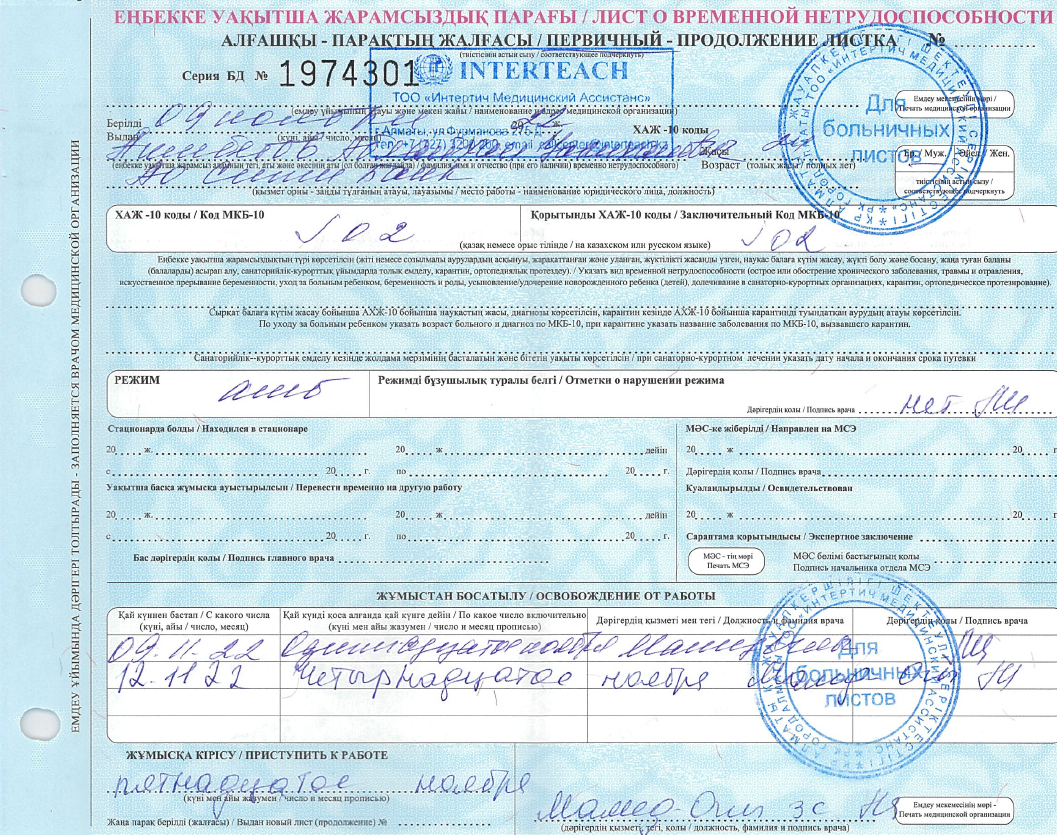 ЕҢБЕККЕ УАҚЫТША ЖАРАМСЫЗДЫҚ ПАРАҒЫ / ЛИСТ О ВРЕМЕННОЙ НЕТРУДОСПОСОБНОСТИ
АЛҒАШҚЫ - ПАРАҚТЫҢ ЖАЛҒАСЫ / ПЕРВИЧНЫЙ - ПРОДОЛЖЕНИЕ ЛИСТКА №
(тиістісінің астын сызу / соответствующее подчеркнуть)
Серия БД № 1974301
INTERTEACH
ТОО «Интертич Медицинский Ассистанс»
(емдеу ұйымының атауы және мекен жайы / наименование и адрес медицинской организации)
Емдеу мекемесінің мөрі / Печать медицинской организации
Для больничных листов
Берілді
Выдан
09 ноября
(күні, айы / число, месяц)
ХАЖ -10 коды
Жасы
Возраст (толық жасы / полных лет)
Ер / Муж. Әйел / Жен.
тиістісінің астын сызу / соответствующее подчеркнуть
(еңбекке уақытша жарамсыз адамның тегі, аты және әкесінің аты (ол болған жағдайда) / фамилия, имя и отчество (при его наличии) временно нетрудоспособного)
(қызмет орны - заңды тұлғаның атауы, лауазымы / место работы - наименование юридического лица, должность)
ХАЖ -10 коды / Код МКБ-10
J 02
Қорытынды ХАЖ-10 коды / Заключительный Код МКБ-10
J 02
(қазақ немесе орыс тілінде / на казахском или русском языке)
Еңбекке уақытша жарамсыздықтың түрі көрсетілсін (жіті немесе созылмалы аурулардың асқынуы, жарақаттанған және уланған, жүктілікті жасанды үзген, науқас балаға күтім жасау, жүкті болу және босану, жаңа туған баланы
(балаларды) асырап алу, санаторийлік-курорттық ұйымдарда толық емделу, карантин, ортопедиялық протездеу). / Указать вид временной нетрудоспособности (острое или обострение хронического заболевания, травмы и отравления,
искусственное прерывание беременности, уход за больным ребенком, беременность и роды, усыновление/удочерение новорожденного ребенка (детей), долечивание в санаторно-курортных организациях, карантин, ортопедическое протезирование).
Сырқат балаға күтім жасау бойынша АХЖ-10 бойынша науқастың жасы, диагнозы көрсетілсін, карантин кезінде АХЖ-10 бойынша карантинді туындатқан аурудың атауы көрсетілсін.
По уходу за больным ребенком указать возраст больного и диагноз по МКБ-10, при карантине указать название заболевания по МКБ-10, вызвавшего карантин.
Санаторийлік--курорттық емделу кезінде жолдама мерзімінің басталатын және бітетін уақыты көрсетілсін / при санаторно-курортном лечении указать дату начала и окончания срока путевки
РЕЖИМ амб
Режимді бұзушылық туралы белгі / Отметки о нарушении режима
Дәрігердің қолы / Подпись врача нет
Стационарда болды / Находился в стационаре
20 ж. 20 ж дейін
с 20 г. по 20 г.
МӘС-ке жіберілді / Направлен на МСЭ
20 ж 20
Дәрігердің қолы / Подпись врача
Уақытша басқа жұмысқа ауыстырылсын / Перевести временно на другую работу
20 ж. 20 ж дейін
с 20 г. по 20 г.
Куәландырылды / Освидетельствован
20 ж 20
Сараптама қорытындысы / Экспертное заключение
Бас дәрігердің қолы / Подпись главного врача
МӘС - тің мөрі
Печать МСЭ
МӘС бөлімі бастығының қолы
Подпись начальника отдела МСЭ
ЖҰМЫСТАН БОСАТЫЛУ / ОСВОБОЖДЕНИЕ ОТ РАБОТЫ
Қай күннен бастап / С какого числа
(күні, айы / число, месяц)
Қай күнді қоса алғанда қай күнге дейін / По какое число включительно
(күні мен айы жазумен / число и месяц прописью)
Дәрігердің қызметі мен тегі / Должность и фамилия врача
Дәрігердің қолы / Подпись врача
09.11.22 Одиннадцатое ноября
12.11 22 Четырнадцатое ноября
Для больничных листов
ЖҰМЫСҚА КІРІСУ / ПРИСТУПИТЬ К РАБОТЕ
пятнадцатое ноября
(күні мен айы жазумен / число и месяц прописью)
Жаңа парақ берілді (жалғасы) / Выдан новый лист (продолжение) №
(дәрігердің қызметі, тегі, қолы / должность, фамилия и подпись врача)
Емдеу мекемесінің мөрі - Печать медицинской организации
ЕМДЕУ ҰЙЫМЫНДА ДӘРІГЕРІ ТОЛТЫРАДЫ - ЗАПОЛНЯЕТСЯ ВРАЧОМ МЕДИЦИНСКОЙ ОРГАНИЗАЦИИ